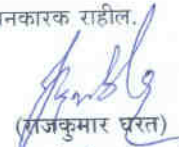 नकारक राहील.
(राजकुमार घरत)